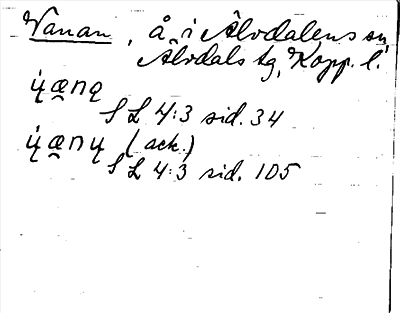 Vanan, å i Älvdalens sn,
Älvdals tg, Kopp. l.
SL 4:3 sid. 34
(ack.)
SL 4:3 sid. 105